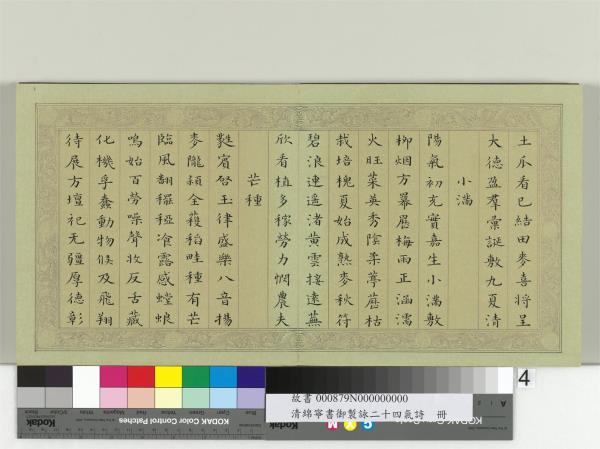 土爪看已結田麥喜將呈
大德盈羣彙誕敷九夏清
小滿
陽氣初充實嘉生小滿敷
柳烟方羃𮟏梅雨正涵濡
火旺菜英秀陰柔葶藶枯
栽培槐夏始成熟麥秋符
碧浪連遥渚黄雲接遠蕪
欣看植多稼勞力憫農夫
芒種
蕤賓啓玉律盛樂八音揚
麥隴頴全穫稻畦種有芒
臨風翻䆉稏飡露感螳蜋
鳴始百勞噪聲收反舌藏
化機孚蠢動物候及飛翔
待展方壇祀无疆厚德彰
4
故書 000879N000000000
清綿寧書御製詠二十四氣詩 冊
Kodak
KODAK Color Control Patches
C Y M